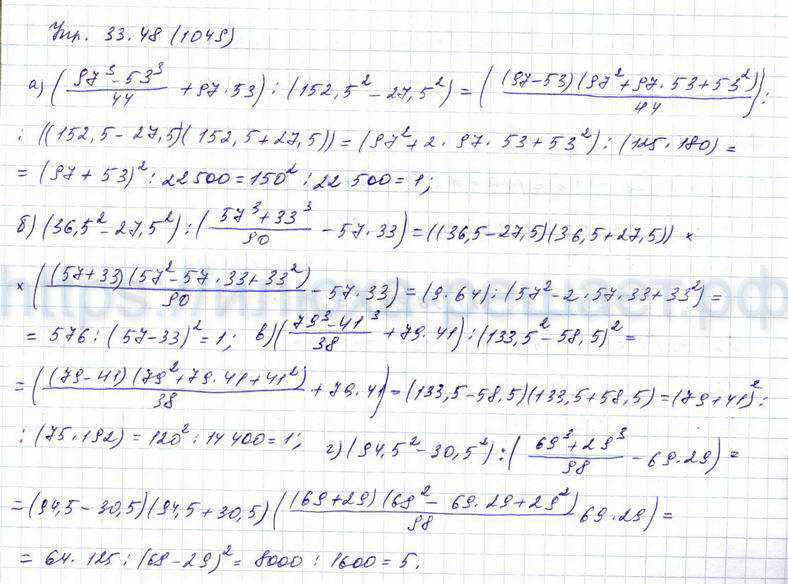 Упр. 33.48 (1049)
а) ((97³-53³)/44 + 97·53) : (152,5² - 27,5²) = ((97-53)(97²+97·53+53²)/44) :
: ((152,5-27,5)(152,5+27,5)) = (97²+2·97·53+53²) : (125·180) =
= (97+53)² : 22500 = 150² : 22 500 = 1;
б) (36,5²-27,5²) : ((57³+33³)/90 - 57·33) = ((36,5-27,5)(36,5+27,5)) ×
× ((57+33)(57²-57·33+33²)/90 - 57·33) = (9·64) : (57²-2·57·33+33²) =
= 576 : (57-33)² = 1; в) ((79³-41³)/38 + 79·41) : (133,5²-58,5)² =
= ((79-41)(79²+79·41+41²)/38 + 79·41) = (133,5-58.5)(133,5+58,5) = (79+41)² :
: (75·192) = 120² : 14 400 = 1; г) (94,5²-30,5²) : ((69³+29³)/98 - 69·29) =
= (94,5-30,5)(94,5+30,5) ((69+29)(69²-69·29+29²)/98 69·29) =
= 64·125 : (69-29)² = 8000 : 1600 = 5.